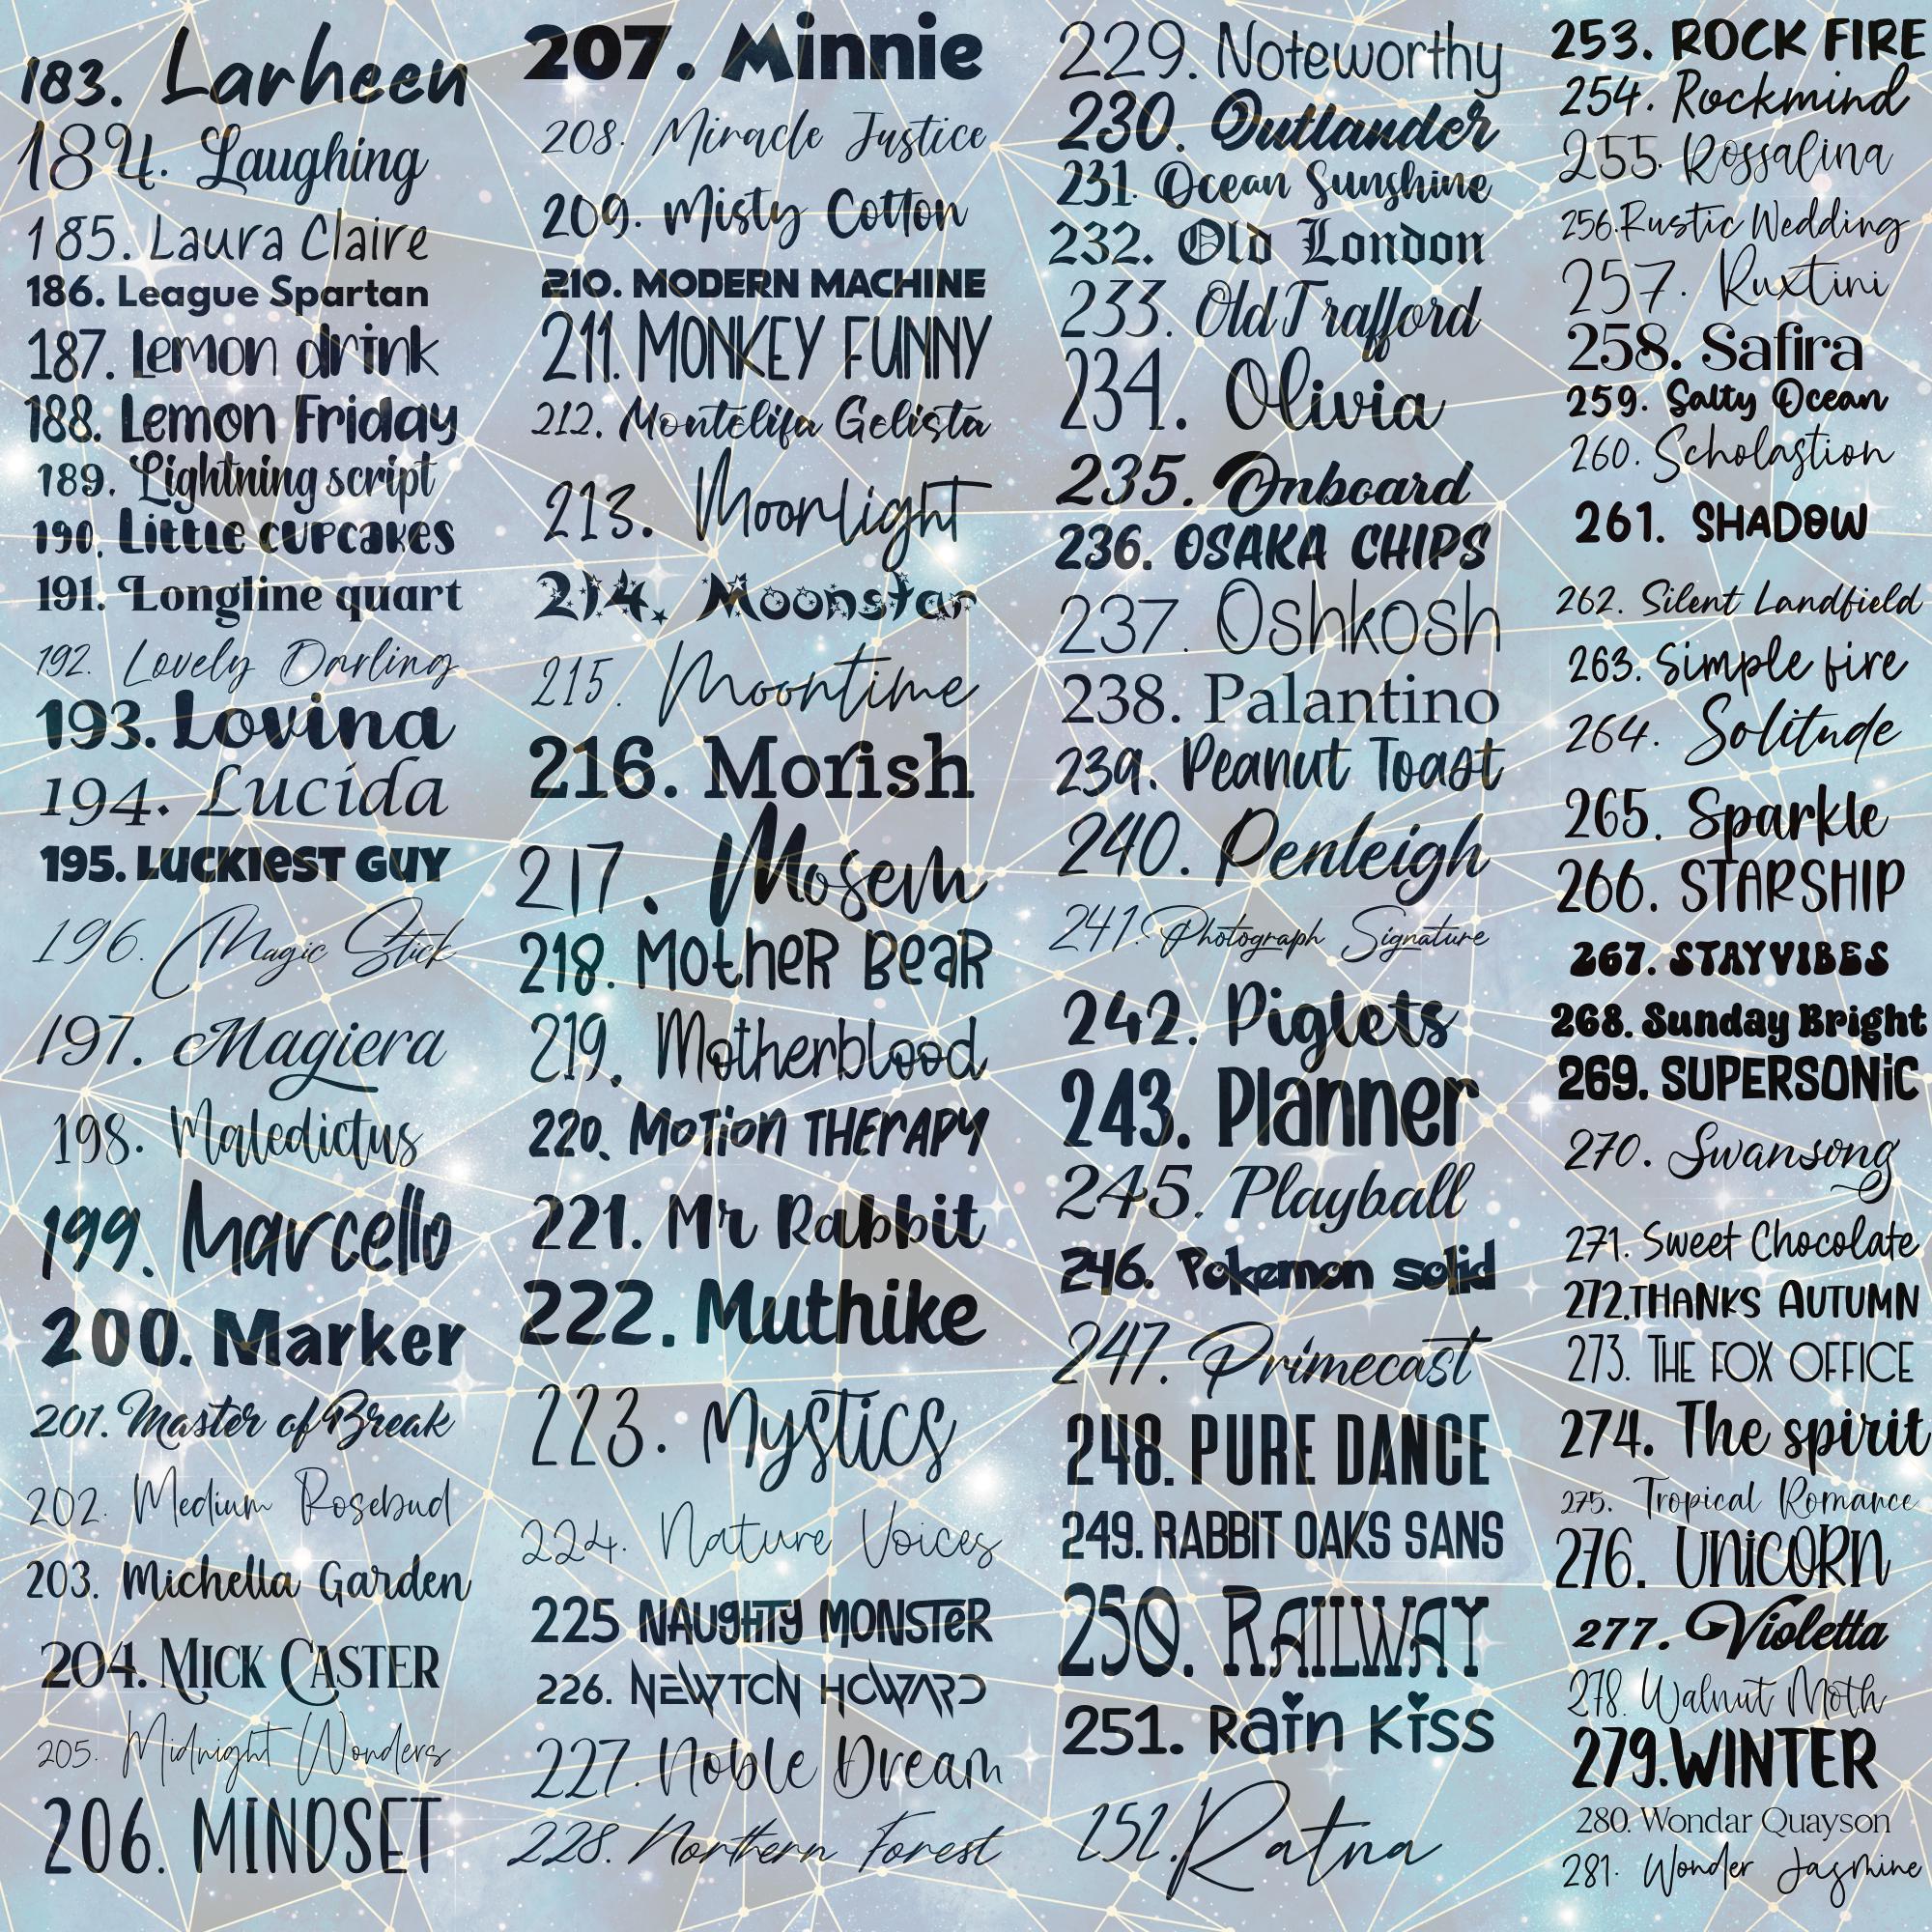 183. Larheen
184. Laughing
185. Laura Claire
186. League Spartan
187. Lemon drink
188. Lemon Friday
189. Lightning script
190. Little cupcakes
191. Longline quart
192. Lovely Darling
193. Lovina
194. Lucida
195. LUCKIEST GUY
196. Magic Stick
197. Magiera
198. Maledictus
199. Marcello
200. Marker
201. Master of Break
202. Medium Rosebud
203. Michella Garden
204. MICK CASTER
205. Midnight Wonders
206. MINDSET
207. Minnie
208. Miracle Justice
209. Misty Cotton
210. MODERN MACHINE
211. MONKEY FUNNY
212. Montelifa Gelista
213. Moonlight
214. Moonstar
215. Moontime
216. Morish
217. Mosem
218. MotheR BeaR
219. Motherblood
220. Motion THErAPY
221. Mr Rabbit
222. Muthike
223. Mystics
224. Nature Voices
225 NAUGHTY MONSTeR
226. NEWTON HOWARD
227. Noble Dream
228. Northern Forest
229. Noteworthy
230. Outlander
231. Ocean Sunshine
232. Old London
233. Old Trafford
234. Olivia
235. Onboard
236. OSAKA CHIPS
237. Oshkosh
238. Palantino
239. Peanut Toast
240. Penleigh
241. Photograph Signature
242. Piglets
243. Planner
245. Playball
246. Pokemon solid
247. Primecast
248. PURE DANCE
249. RABBIT OAKS SANS
250. RAILWAY
251. Rain Kiss
252. Ratna
253. ROCK FIRE
254. Rockmind
255. Rossalina
256. Rustic Wedding
257. Ruxtini
258. Safira
259. Salty Ocean
260. Scholastion
261. SHADOW
262. Silent Landfield
263. Simple fire
264. Solitude
265. Sparkle
266. STARSHIP
267. STAYVIBES
268. Sunday Bright
269. SUPERSONiC
270. Swansong
271. Sweet Chocolate
272. THANKS AUTUMN
273. THE FOX OFFICE
274. The spirit
275. Tropical Romance
276. UNiCORN
277. Violetta
278. Walnut Moth
279. WINTER
280. Wondar Quayson
281. Wonder Jasmine